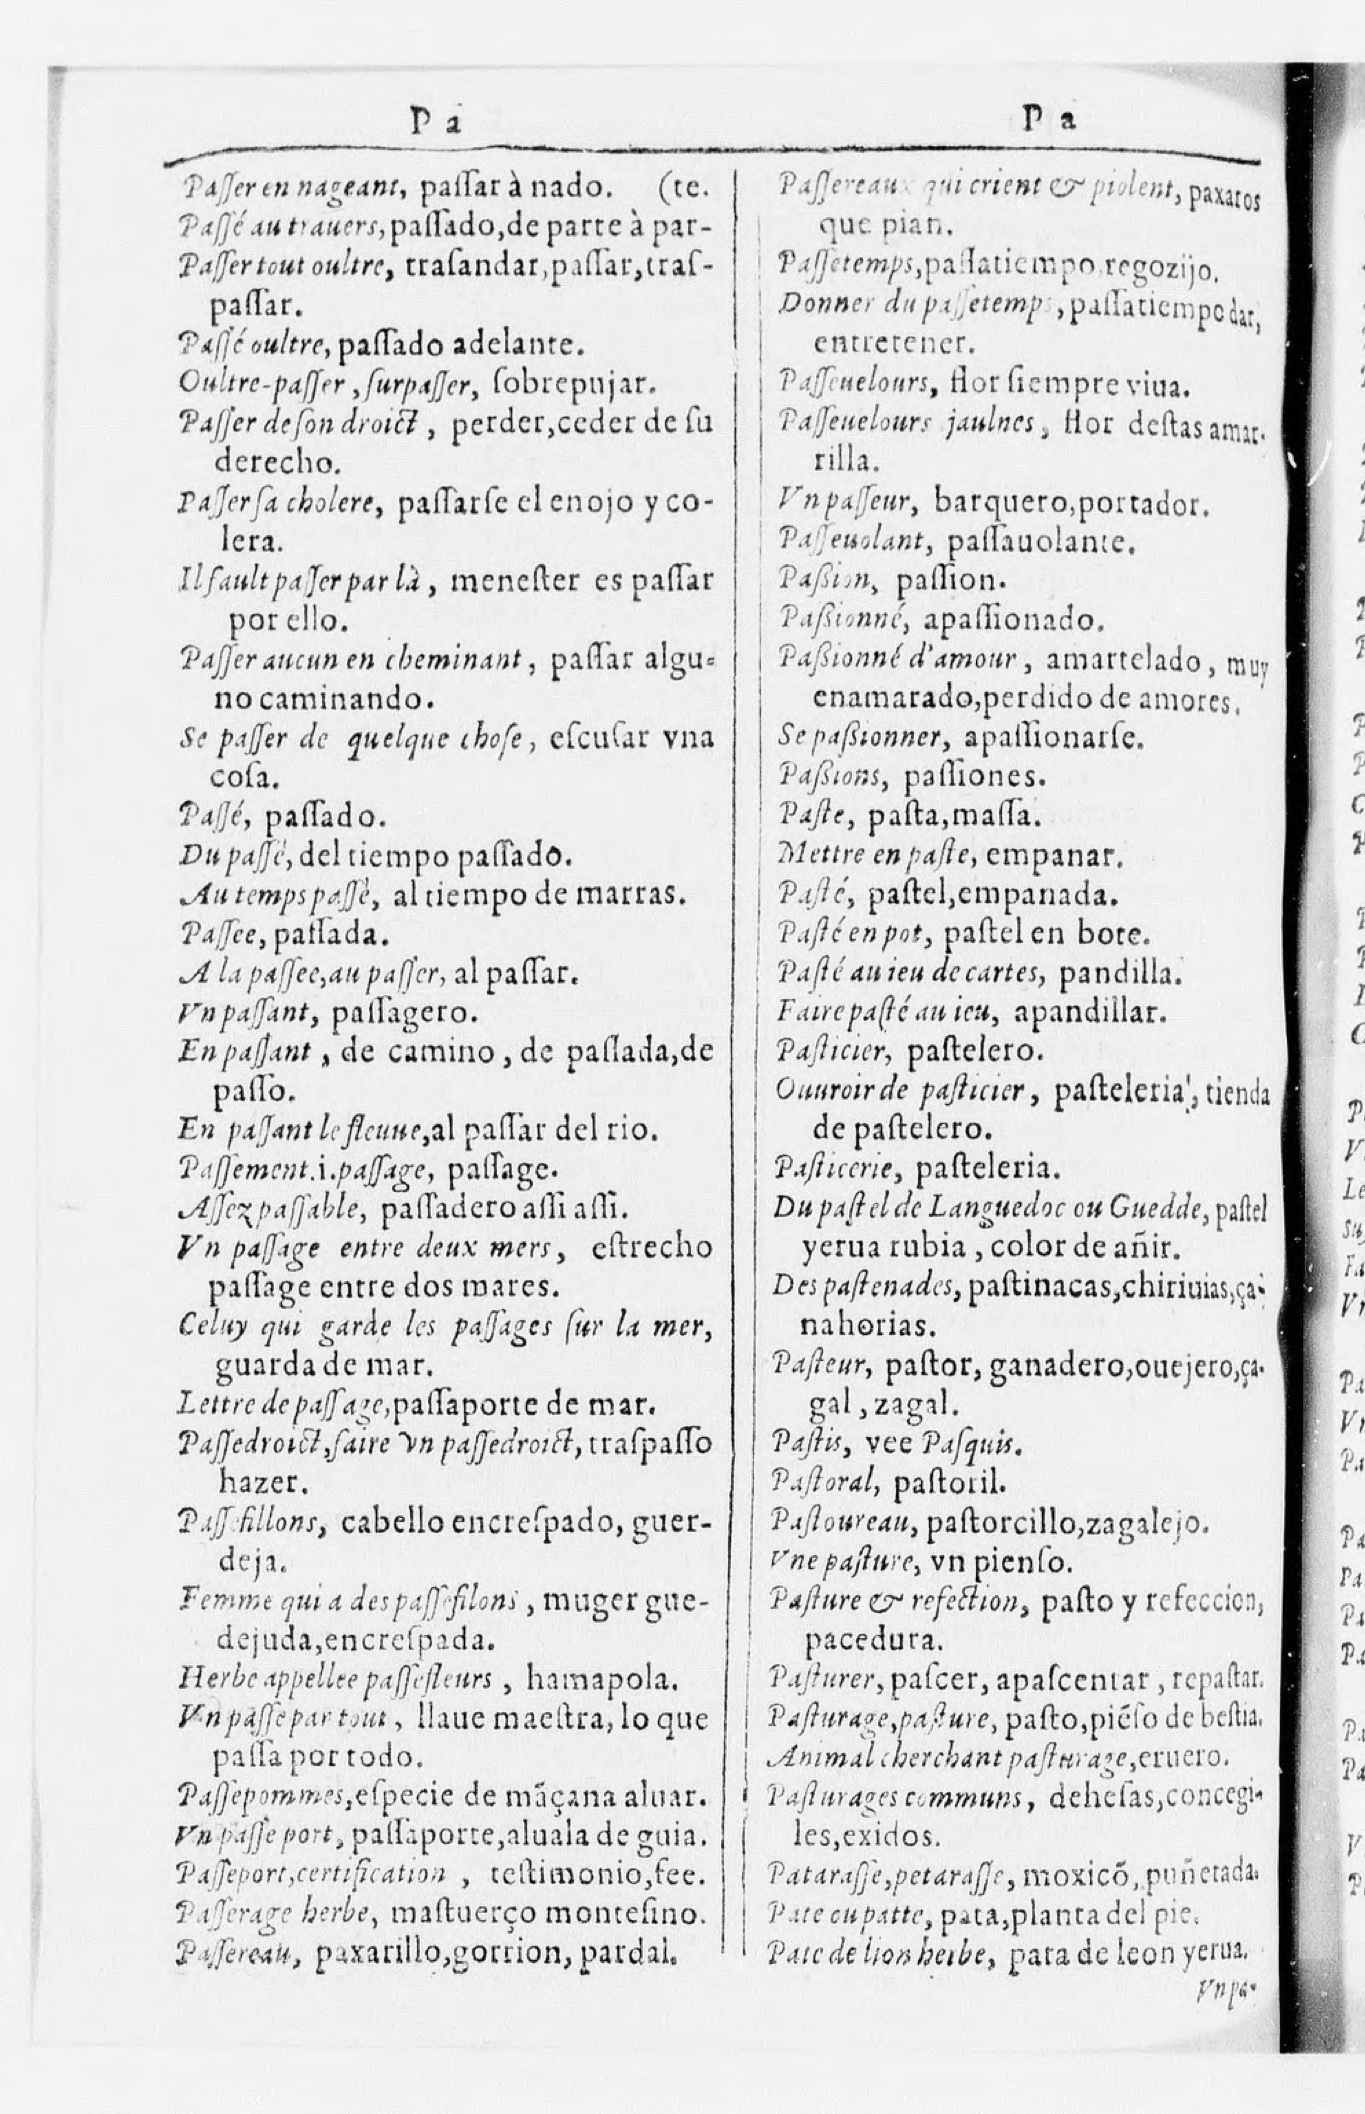 P a
Paſſer en nageant, paſſar à nado. (te.
Paſſé au trauers, paſſado, de parte à par-
Paſſer tout oultre, traſandar, paſſar, traſ-
paſſar.
Paſſé oultre, paſſado adelante.
Oultre-paſſer, ſurpaſſer, ſobrepujar.
Paſſer de ſon droict, perder, ceder de ſu
derecho.
Paſſer ſa cholere, paſſarſe el enojo y co-
lera.
Il fault paſſer par là, meneſter es paſſar
por ello.
Paſſer aucun en cheminant, paſſar algu-
no caminando.
Se paſſer de quelque choſe, eſcuſar vna
coſa.
Paſſé, paſſado.
Du paſſé, del tiempo paſſado.
Au temps paſſé, al tiempo de marras.
Paſſee, paſſada.
A la paſſee, au paſſer, al paſſar.
Vn paſſant, paſſagero.
En paſſant, de camino, de paſſada, de
paſſo.
En paſſant le fleuue, al paſſar del rio.
Paſſement .i. paſſage, paſſage.
Aſſez paſſable, paſſadero aſſi aſſi.
Vn paſſage entre deux mers, eſtrecho
paſſage entre dos mares.
Celuy qui garde les paſſages ſur la mer,
guarda de mar.
Lettre de paſſage, paſſaporte de mar.
Paſſedroict, faire vn paſſedroict, traſpaſſo
hazer.
Paſſefillons, cabello encreſpado, guer-
deja.
Femme qui a des paſſefilons, muger gue-
dejuda, encreſpada.
Herbe appellee paſſefleurs, hamapola.
Vn paſſe par tout, llaue maeſtra, lo que
paſſa por todo.
Paſſepommes, eſpecie de mãçana aluar.
Vn paſſe port, paſſaporte, aluala de guia.
Paſſeport, certification, teſtimonio, fee.
Paſſerage herbe, maſtuerço monteſino.
Paſſereau, paxarillo, gorrion, pardal.
P a
Paſſereaux qui crient & piolent, paxaros
que pian.
Paſſetemps, paſſatiempo, regozijo.
Donner du paſſetemps, paſſatiempo dar,
entretener.
Paſſeuelours, flor ſiempre viua.
Paſſeuelours jaulnes, flor deſtas amar-
rilla.
Vn paſſeur, barquero, portador.
Paſſeuolant, paſſauolante.
Paßion, paſſion.
Paßionné, apaſſionado.
Paßionné d'amour, amartelado, muy
enamarado, perdido de amores.
Se paßionner, apaſſionarſe.
Paßions, paſſiones.
Paſte, paſta, maſſa.
Mettre en paſte, empanar.
Paſté, paſtel, empanada.
Paſté en pot, paſtel en bote.
Paſté au ieu de cartes, pandilla.
Faire paſté au ieu, apandillar.
Paſticier, paſtelero.
Ouuroir de paſticier, paſteleria, tienda
de paſtelero.
Paſticerie, paſteleria.
Du paſtel de Languedoc ou Guedde, paſtel
yerua rubia, color de añir.
Des paſtenades, paſtinacas, chiriuias, ça-
nahorias.
Paſteur, paſtor, ganadero, ouejero, ça-
gal, zagal.
Paſtis, vee Paſquis.
Paſtoral, paſtoril.
Paſtoureau, paſtorcillo, zagalejo.
Vne paſture, vn pienſo.
Paſture & refection, paſto y refeccion,
pacedura.
Paſturer, paſcer, apaſcentar, repaſtar.
Paſturage, paſture, paſto, piẽſo de beſtia.
Animal cherchant paſturage, eruero.
Paſturages communs, deheſas, concegi-
les, exidos.
Pataraſſe, petaraſſe, moxicõ, puñetada.
Pate ou patte, pata, planta del pie.
Pate de lion herbe, pata de leon yerua.
Vn pa-